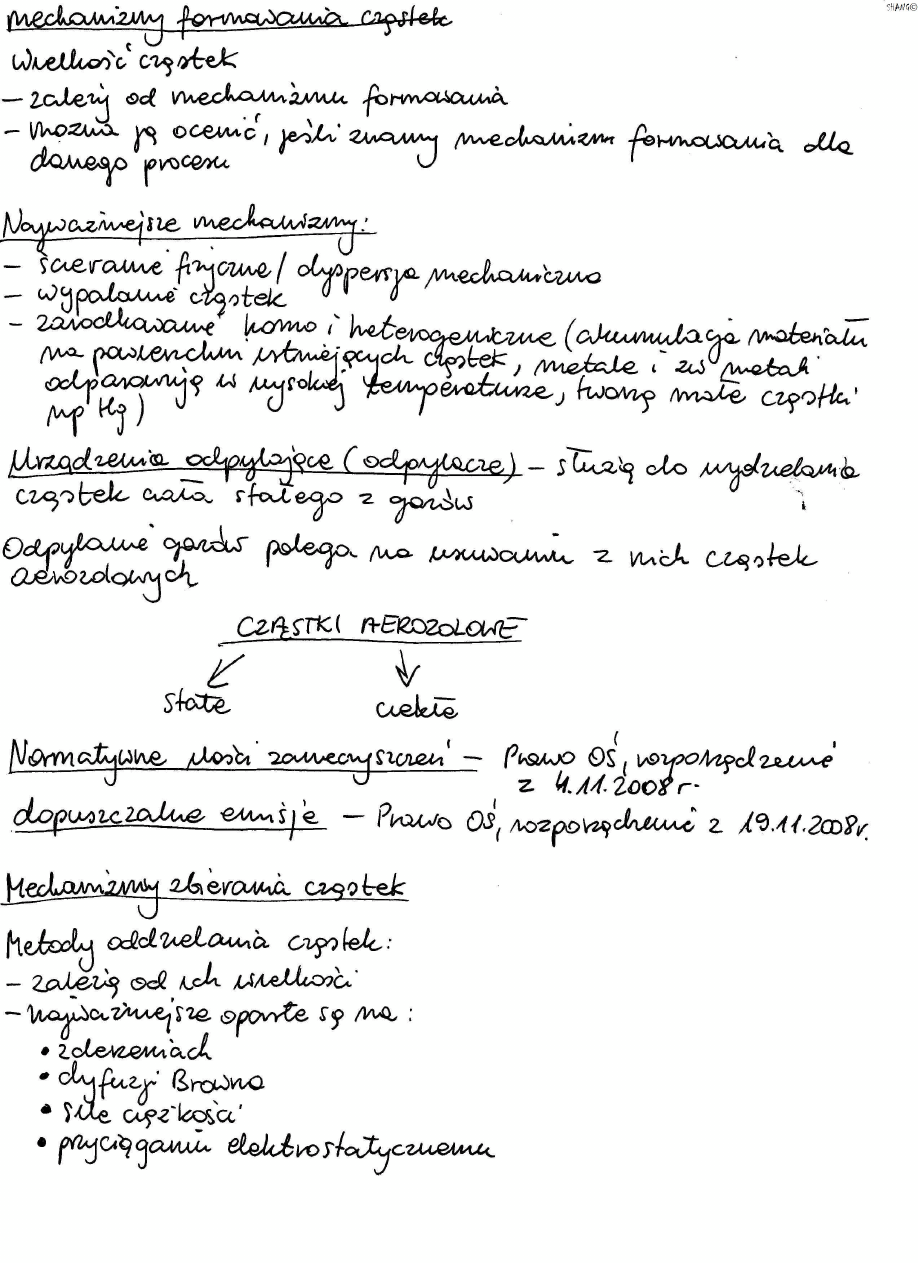 SHANG©
mechanizmy formowania cząstek
Wielkość cząstek
- zależy od mechanizmu formowania
- można ją ocenić, jeśli znamy mechanizm formowania dla
danego procesu
Najważniejsze mechanizmy:
- ścieranie fizyczne / dyspersja mechaniczna
- wypalanie cząstek
- zarodkowanie homo i heterogeniczne (akumulacja materiału
na powierzchni istniejących cząstek, metale i zw metali
odparowują w wysokiej temperaturze, tworzą małe cząstki
np Hg)
Urządzenia odpylające (odpylacze) - służą do wydzielania
cząstek ciała stałego z gazów
Odpylanie gazów polega na usuwaniu z nich cząstek
aerozolowych
CZĄSTKI AEROZOLOWE
stałe ciekłe
Normatywne ilości zanieczyszczeń - Prawo OŚ, rozporządzenie
z 4.11.2008 r.
dopuszczalne emisje - Prawo OŚ, rozporządzenie z 19.11.2008r.
Mechanizmy zbierania cząstek
Metody oddzielania cząstek:
- zależią od ich wielkości
- najważniejsze oparte są na:
• zderzeniach
• dyfuzji Browna
• sile ciężkości
• przyciąganiu elektrostatycznemu